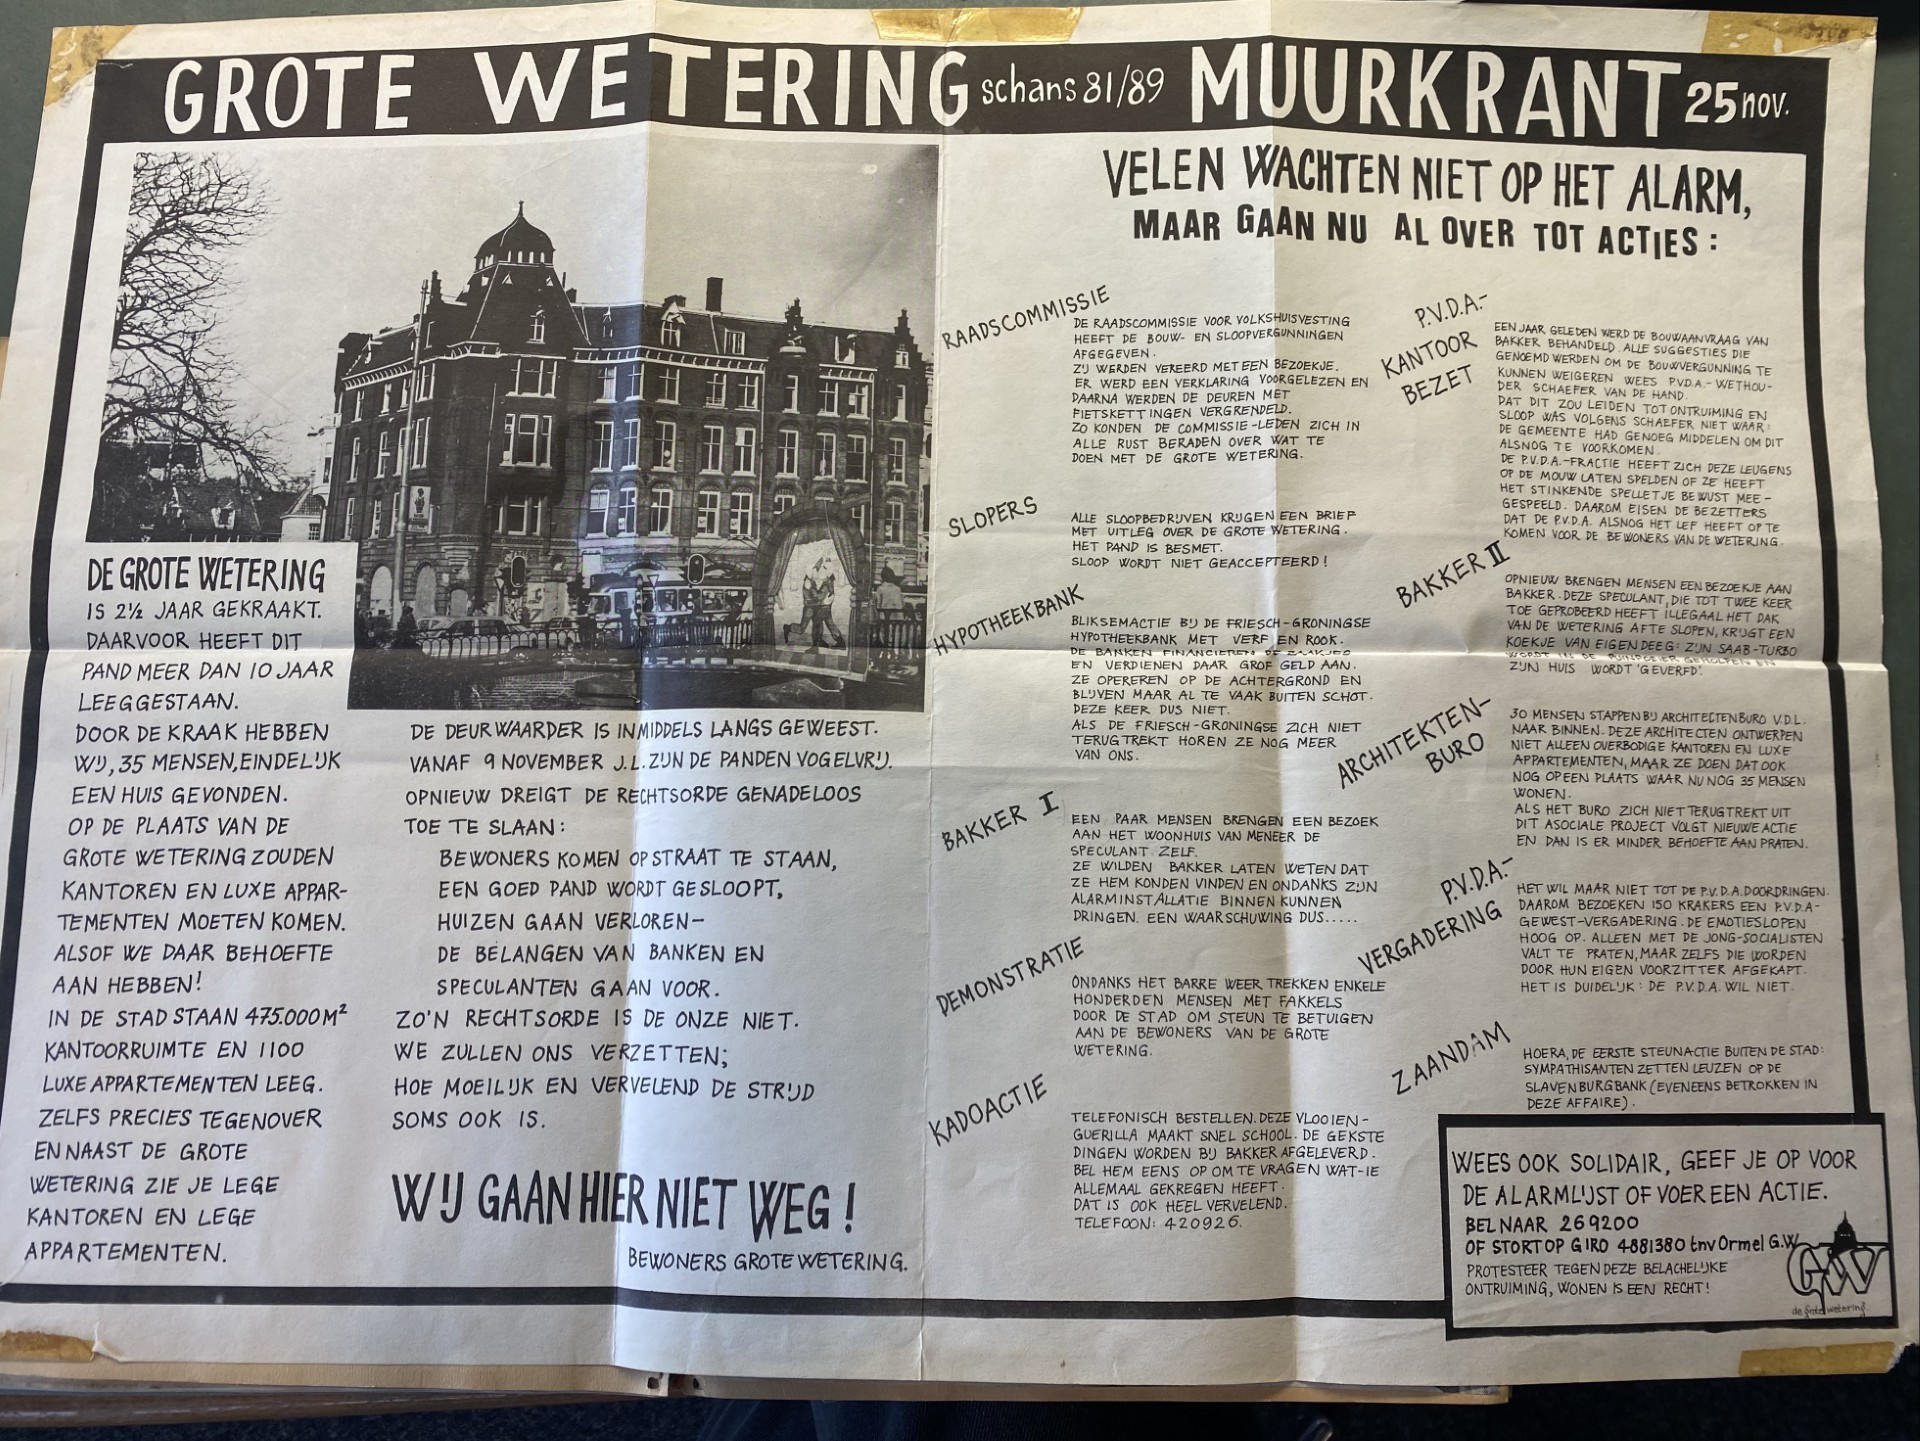 GROTE WETERING schans 81/89 MUURKRANT 25 nov.
DE GROTE WETERING
IS 2½ JAAR GEKRAAKT.
DAARVOOR HEEFT DIT
PAND MEER DAN 10 JAAR
LEEGGESTAAN.
DOOR DE KRAAK HEBBEN
WIJ, 35 MENSEN, EINDELIJK
EEN HUIS GEVONDEN.
OP DE PLAATS VAN DE
GROTE WETERING ZOUDEN
KANTOREN EN LUXE APPAR-
TEMENTEN MOETEN KOMEN.
ALSOF WE DAAR BEHOEFTE
AAN HEBBEN!
IN DE STAD STAAN 475.000 M²
KANTOORRUIMTE EN 1100
LUXE APPARTEMENTEN LEEG.
ZELFS PRECIES TEGENOVER
EN NAAST DE GROTE
WETERING ZIE JE LEGE
KANTOREN EN LEGE
APPARTEMENTEN.
DE DEURWAARDER IS INMIDDELS LANGS GEWEEST.
VANAF 9 NOVEMBER J.L. ZIJN DE PANDEN VOGELVRIJ.
OPNIEUW DREIGT DE RECHTSORDE GENADELOOS
TOE TE SLAAN:
BEWONERS KOMEN OP STRAAT TE STAAN,
EEN GOED PAND WORDT GESLOOPT,
HUIZEN GAAN VERLOREN-
DE BELANGEN VAN BANKEN EN
SPECULANTEN GAAN VOOR.
ZO'N RECHTSORDE IS DE ONZE NIET.
WE ZULLEN ONS VERZETTEN;
HOE MOEILIJK EN VERVELEND DE STRIJD
SOMS OOK IS.
WIJ GAAN HIER NIET WEG!
BEWONERS GROTE WETERING.
VELEN WACHTEN NIET OP HET ALARM,
MAAR GAAN NU AL OVER TOT ACTIES:
RAADSCOMMISSIE
DE RAADSCOMMISSIE VOOR VOLKSHUISVESTING
HEEFT DE BOUW- EN SLOOPVERGUNNINGEN
AFGEGEVEN.
ZIJ WERDEN VEREERD MET EEN BEZOEKJE.
ER WERD EEN VERKLARING VOORGELEZEN EN
DAARNA WERDEN DE DEUREN MET
FIETSKETTINGEN VERGRENDELD.
ZO KONDEN DE COMMISSIE-LEDEN ZICH IN
ALLE RUST BERADEN OVER WAT TE
DOEN MET DE GROTE WETERING.
SLOPERS
ALLE SLOOPBEDRIJVEN KRIJGEN EEN BRIEF
MET UITLEG OVER DE GROTE WETERING.
HET PAND IS BESMET.
SLOOP WORDT NIET GEACCEPTEERD!
HYPOTHEEKBANK
BLIKSEMACTIE BIJ DE FRIESCH-GRONINGSE
HYPOTHEEKBANK MET VERF EN ROOK.
DE BANKEN FINANCIEREN DE ZAAKJES
EN VERDIENEN DAAR GROF GELD AAN.
ZE OPEREREN OP DE ACHTERGROND EN
BLIJVEN MAAR AL TE VAAK BUITEN SCHOT.
DEZE KEER DUS NIET.
ALS DE FRIESCH-GRONINGSE ZICH NIET
TERUGTREKT HOREN ZE NOG MEER
VAN ONS.
BAKKER I
EEN PAAR MENSEN BRENGEN EEN BEZOEK
AAN HET WOONHUIS VAN MENEER DE
SPECULANT ZELF.
ZE WILDEN BAKKER LATEN WETEN DAT
ZE HEM KONDEN VINDEN EN ONDANKS ZIJN
ALARMINSTALLATIE BINNEN KUNNEN
DRINGEN. EEN WAARSCHUWING DUS.....
DEMONSTRATIE
ONDANKS HET BARRE WEER TREKKEN ENKELE
HONDERDEN MENSEN MET FAKKELS
DOOR DE STAD OM STEUN TE BETUIGEN
AAN DE BEWONERS VAN DE GROTE
WETERING.
KADOACTIE
TELEFONISCH BESTELLEN. DEZE VLOOIEN-
GUERILLA MAAKT SNEL SCHOOL. DE GEKSTE
DINGEN WORDEN BIJ BAKKER AFGELEVERD.
BEL HEM EENS OP OM TE VRAGEN WAT-IE
ALLEMAAL GEKREGEN HEEFT.
DAT IS OOK HEEL VERVELEND.
TELEFOON: 420926.
P.V.D.A.-
KANTOOR
BEZET
EEN JAAR GELEDEN WERD DE BOUWAANVRAAG VAN
BAKKER BEHANDELD. ALLE SUGGESTIES DIE
GENOEMD WERDEN OM DE BOUWVERGUNNING TE
KUNNEN WEIGEREN WEES P.V.D.A.-WETHOU-
DER SCHAEFER VAN DE HAND.
DAT DIT ZOU LEIDEN TOT ONTRUIMING EN
SLOOP WAS VOLGENS SCHAEFER NIET WAAR:
DE GEMEENTE HAD GENOEG MIDDELEN OM DIT
ALSNOG TE VOORKOMEN.
DE P.V.D.A.-FRACTIE HEEFT ZICH DEZE LEUGENS
OP DE MOUW LATEN SPELDEN OF ZE HEEFT
HET STINKENDE SPELLETJE BEWUST MEE-
GESPEELD. DAAROM EISEN DE BEZETTERS
DAT DE P.V.D.A. ALSNOG HET LEF HEEFT OP TE
KOMEN VOOR DE BEWONERS VAN DE WETERING.
BAKKER II
OPNIEUW BRENGEN MENSEN EEN BEZOEKJE AAN
BAKKER. DEZE SPECULANT, DIE TOT TWEE KEER
TOE GEPROBEERD HEEFT ILLEGAAL HET DAK
VAN DE WETERING AF TE SLOPEN, KRIJGT EEN
KOEKJE VAN EIGEN DEEG: ZIJN SAAB-TURBO
WORDT IN DE EN
ZIJN HUIS WORDT 'GEVERFD'.
ARCHITEKTEN-
BURO
30 MENSEN STAPPEN BIJ ARCHITECTENBURO V.D.L.
NAAR BINNEN. DEZE ARCHITECTEN ONTWERPEN
NIET ALLEEN OVERBODIGE KANTOREN EN LUXE
APPARTEMENTEN, MAAR ZE DOEN DAT OOK
NOG OP EEN PLAATS WAAR NU NOG 35 MENSEN
WONEN.
ALS HET BURO ZICH NIET TERUGTREKT UIT
DIT ASOCIALE PROJECT VOLGT NIEUWE ACTIE
EN DAN IS ER MINDER BEHOEFTE AAN PRATEN.
P.V.D.A.-
VERGADERING
HET WIL MAAR NIET TOT DE P.V.D.A. DOORDRINGEN.
DAAROM BEZOEKEN 150 KRAKERS EEN P.V.D.A-
GEWEST-VERGADERING. DE EMOTIES LOPEN
HOOG OP. ALLEEN MET DE JONG-SOCIALISTEN
VALT TE PRATEN, MAAR ZELFS DIE WORDEN
DOOR HUN EIGEN VOORZITTER AFGEKAPT.
HET IS DUIDELIJK: DE P.V.D.A. WIL NIET.
ZAANDAM
HOERA, DE EERSTE STEUNACTIE BUITEN DE STAD:
SYMPATHISANTEN ZETTEN LEUZEN OP DE
SLAVENBURGBANK (EVENEENS BETROKKEN IN
DEZE AFFAIRE).
WEES OOK SOLIDAIR, GEEF JE OP VOOR
DE ALARMLIJST OF VOER EEN ACTIE.
BEL NAAR 269200
OF STORT OP GIRO 4881380 tnv Ormel G.W.
PROTESTEER TEGEN DEZE BELACHELIJKE
ONTRUIMING, WONEN IS EEN RECHT!
GW
de grote wetering